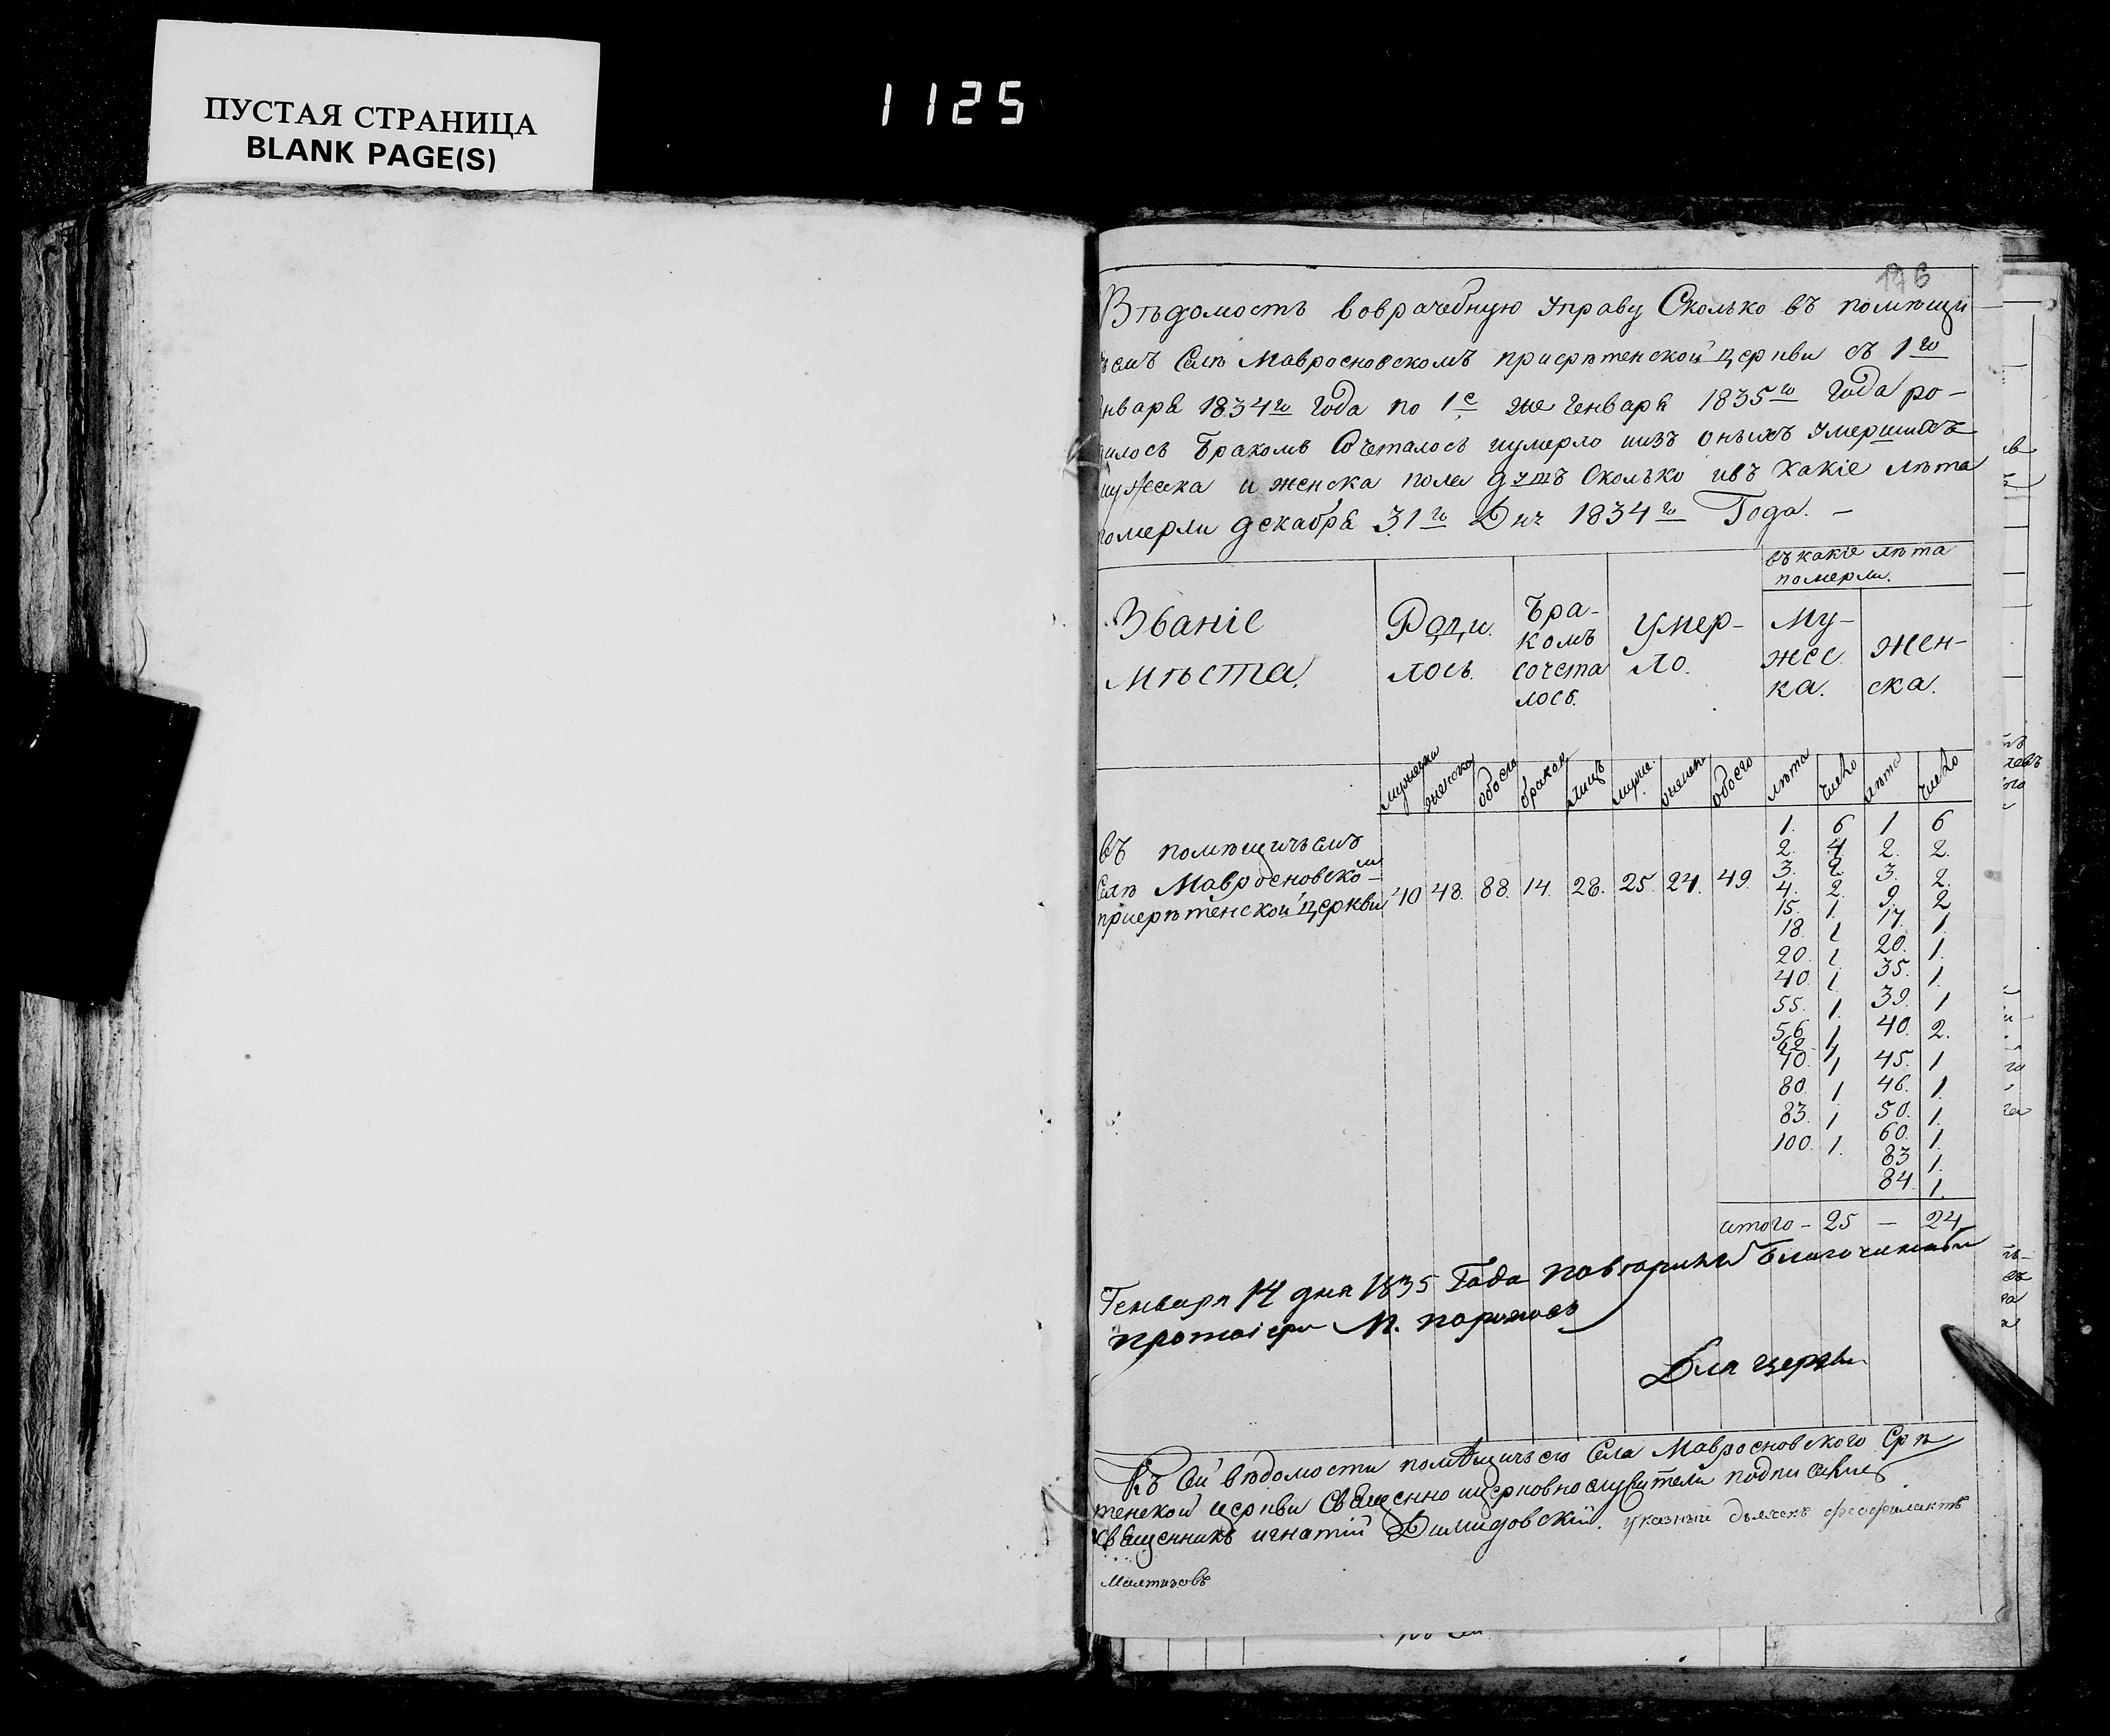 ПУСТАЯ СТРАНИЦА
BLANK PAGE(S)
1125
Вѣдомость воврачебную управу Сколько въ помѣщи
Селѣ Мавросновскомъ присрѣтенской церкви съ 1го
1834го года по 1е же Генваря 1835го года ро-
Бракомъ Сочеталось иумерло иизъ оныхъ умершихъ
и женска пола душъ Сколько ивъ какіе лѣта
померли декабря 31го Дня 1834го Года. –
Званіе мѣста.
Роди лось.
Бра- комъ сочета лось.
Умер- ло.
въ какіе лѣта померли.
Му- жес ка.
Жен- ска.
мужеска женска обоего браков лицъ муже. женска обоего лѣта число лѣта число
въ помѣщичьемъ
Селѣ Мавросновском
присрѣтенской церкви 40 48. 88. 14. 28. 25. 24. 49.
1. 6 1 6
2. 4 2. 2.
3. 2. 3. 2.
4. 2. 9. 2
15. 1. 17. 1.
18. 1 20. 1.
20. 1. 35. 1.
40. 1. 39. 1
55. 1. 40. 2.
56 1 45. 1
62 1 46. 1.
70. 1 50. 1.
80. 1 60. 1.
83. 1 83 1.
100. 1. 84. 1.
итого – 25 – 24
Генваря 14 дня 1835 Года Благочинный
протоіерей М.
Для церкви
Къ Сей вѣдомости помѣщичьего Села Мавросновского Срѣ
тенской церкви Священно ицерковнослужители подписались
Священникъ игнатій Димидовскій. указный дьячекъ феофилактъ